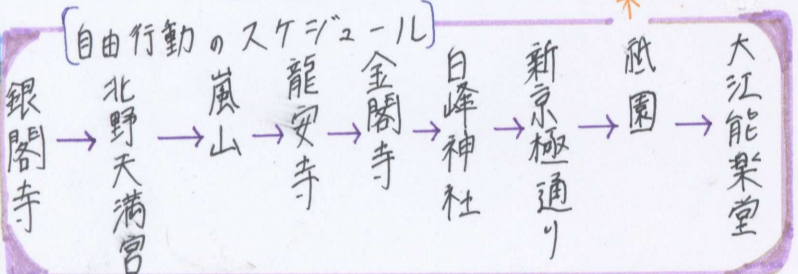 [自由行動のスケジュール]
銀閣寺
→
北野天満宮
→
嵐山
→
龍安寺
→
金閣寺
→
白峰神社
→
新京極通り
→
祇園
→
大江能楽堂